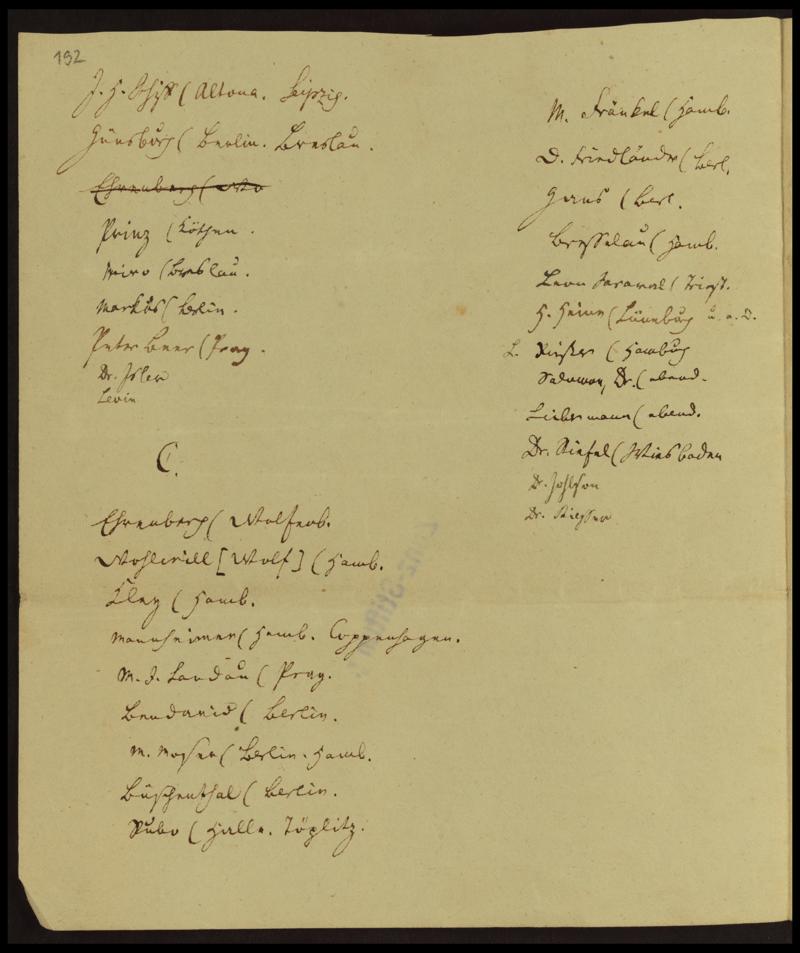 192
J. H. Schiff (Altona. Leipzig.
Günsburg (Berlin. Breslau.
Ehrenberg (Wo
Prinz (Köthen.
Miro (Breslau.
Markus (Berlin.
Peter Beer (Prag.
Dr. Isler
Levin
C.
Ehrenberg (Wolfenb.
Wohlwill [Wolf] (Hamb.
Kley (Hamb.
Mannheimer (Hamb. Coppenhagen.
M. I. Landau (Prag.
Bendavid (Berlin.
M. Moser (Berlin. Hamb.
Büschenthal (Berlin.
Rubo (Halle. Töplitz.
M. Fränkel (Hamb.
D. Friedländer (Berl.
Gans (Berl.
Bresselau (Hamb.
Leon Saraval (Triest.
H. Heine (Lüneburg u. a. O.
L. Rießer (Hamburg
Salomon, Dr. (ebend.
Liebermann (ebend.
Dr. (Wiesbaden
Dr. Johlson
Dr.
Zunz-Stiftung